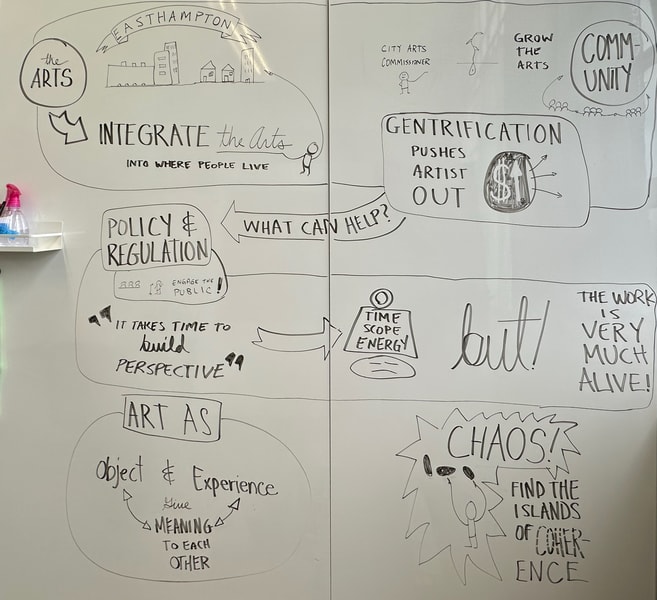 EASTHAMPTON
the
ARTS
INTEGRATE the Arts
INTO WHERE PEOPLE LIVE
CITY ARTS
COMMISSIONER
GROW
THE
ARTS
COMM-
UNITY
GENTRIFICATION
PUSHES
ARTIST
OUT
$
WHAT CAN HELP?
POLICY &
REGULATION
ENGAGE THE
PUBLIC!
"IT TAKES TIME TO
build
PERSPECTIVE"
TIME
SCOPE
ENERGY
but!
THE WORK
IS
VERY
MUCH
ALIVE!
ART AS
Object & Experience
Give
MEANING
TO EACH
OTHER
CHAOS!
FIND THE
ISLANDS
OF COHER-
ENCE